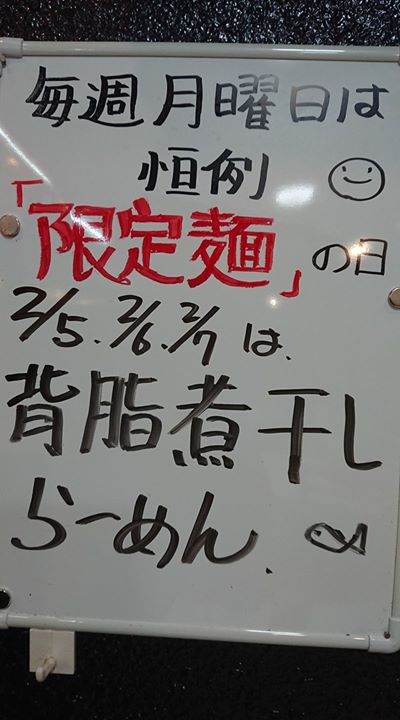 毎週月曜日は
恒例
「限定麺」の日
2/5.2/6.2/7は.
背脂煮干し
らーめん.